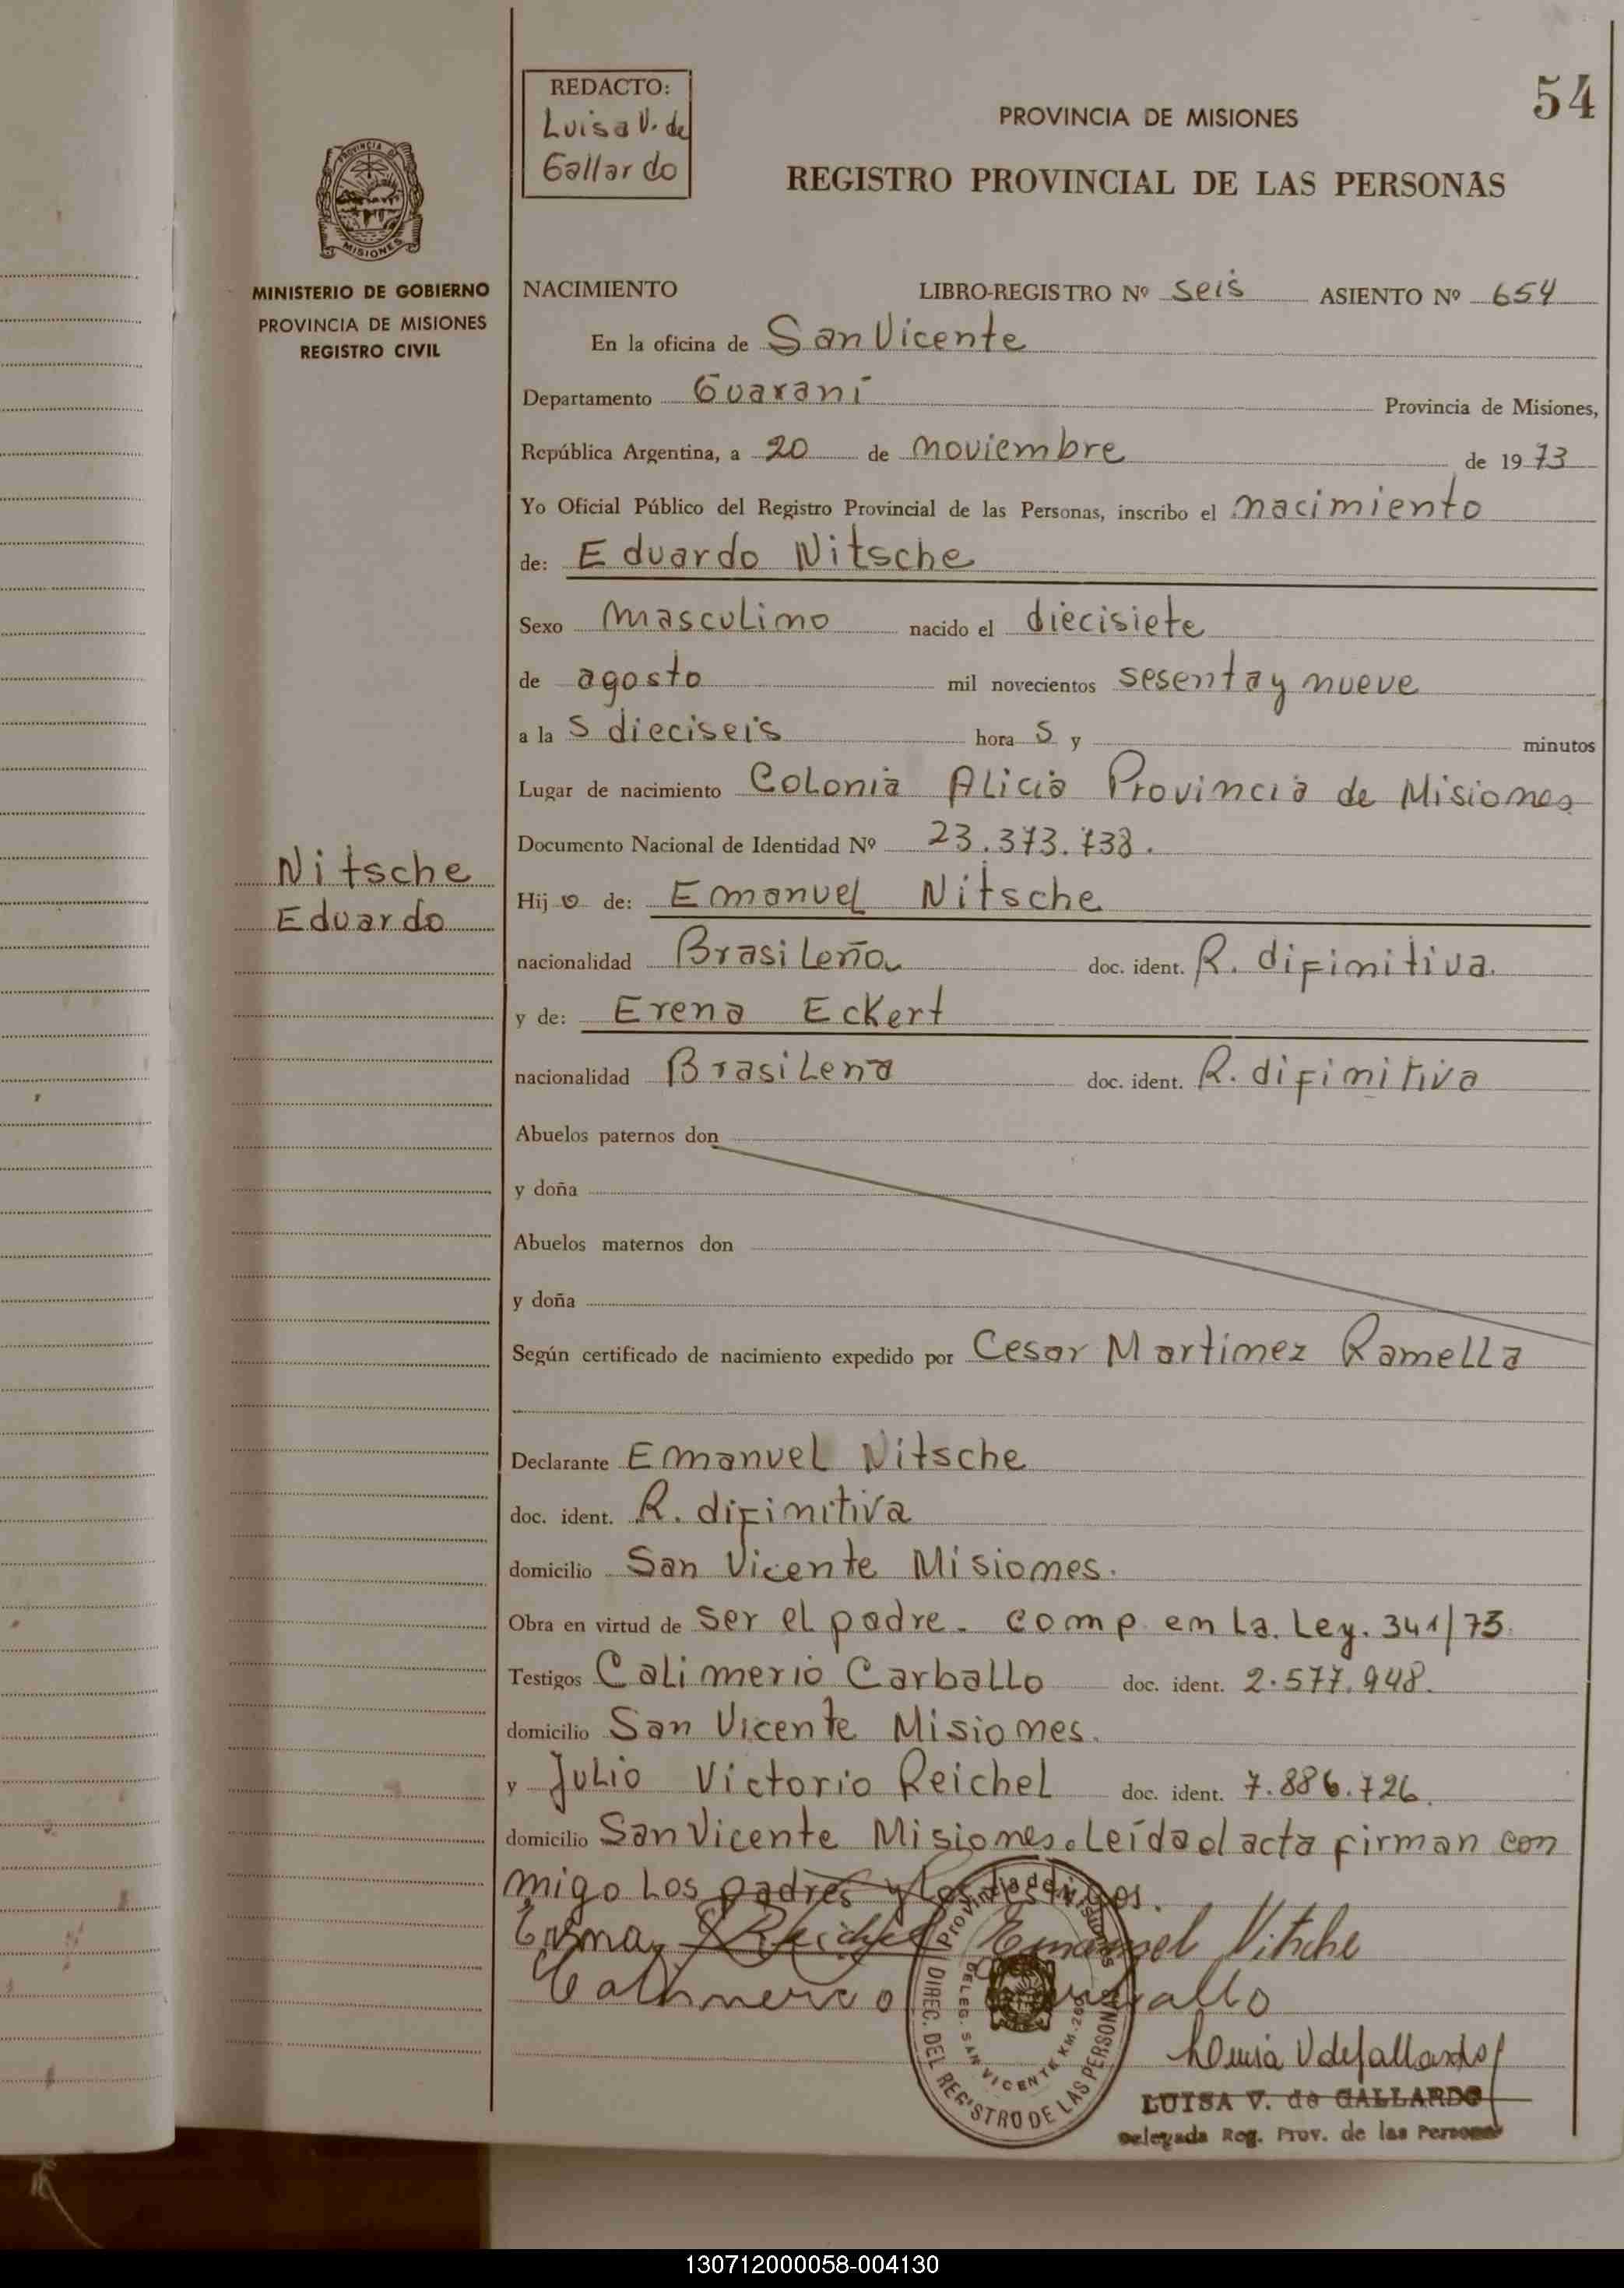 54
REDACTO:
Luisa V. de
Gallardo
PROVINCIA DE MISIONES
REGISTRO PROVINCIAL DE LAS PERSONAS
PROVINCIA DE
MISIONES
MINISTERIO DE GOBIERNO
PROVINCIA DE MISIONES
REGISTRO CIVIL
Nitsche
Eduardo
NACIMIENTO LIBRO-REGISTRO Nº seis ASIENTO Nº 654
En la oficina de San Vicente
Departamento Guaraní Provincia de Misiones,
República Argentina, a 20 de noviembre de 1973
Yo Oficial Público del Registro Provincial de las Personas, inscribo el nacimiento
de: Eduardo Nitsche
Sexo masculino nacido el diecisiete
de agosto mil novecientos sesenta y nueve
a la s dieciseis hora s y minutos
Lugar de nacimiento Colonia Alicia Provincia de Misiones
Documento Nacional de Identidad Nº 23.373.738.
Hij o de: Emanuel Nitsche
nacionalidad Brasileña doc. ident. R. difinitiva.
y de: Erena Eckert
nacionalidad Brasilena doc. ident. R. difinitiva
Abuelos paternos don
y doña
Abuelos maternos don
y doña
Según certificado de nacimiento expedido por Cesar Martinez Ramella
Declarante Emanuel Nitsche
doc. ident. R. difinitiva
domicilio San Vicente Misiones.
Obra en virtud de ser el padre. comp en la. Ley. 341/73.
Testigos Calimerio Carballo doc. ident. 2.577.948.
domicilio San Vicente Misiones.
y Julio Victorio Reichel doc. ident. 7.886.726.
domicilio San Vicente Misiones. Leída el acta firman con
migo los padres y los testigos.
Reichel Emanuel Nitsche
Calimerio
Luisa V de Gallardo
LUISA V. de GALLARDO
Delegada Reg. Prov. de las Personas
Provincia de Misiones
DIREC. DEL REGISTRO DE LAS PERSONAS
DELEG. SAN VICENTE KM.
130712000058-004130